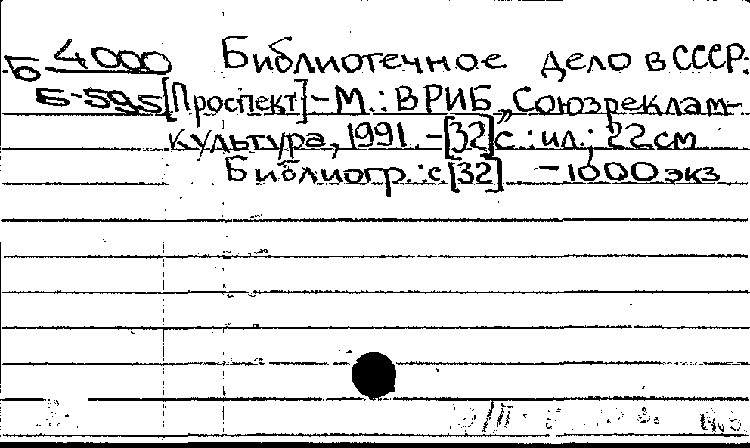 Б 4000 Библиотечное дело в СССР:
Б-595 [Проспект] – М.: ВРИБ „Союзреклам-
культура, 1991. – [32] с.: ил.; 22 см
Библиогр.: с. [32] – 1000 экз